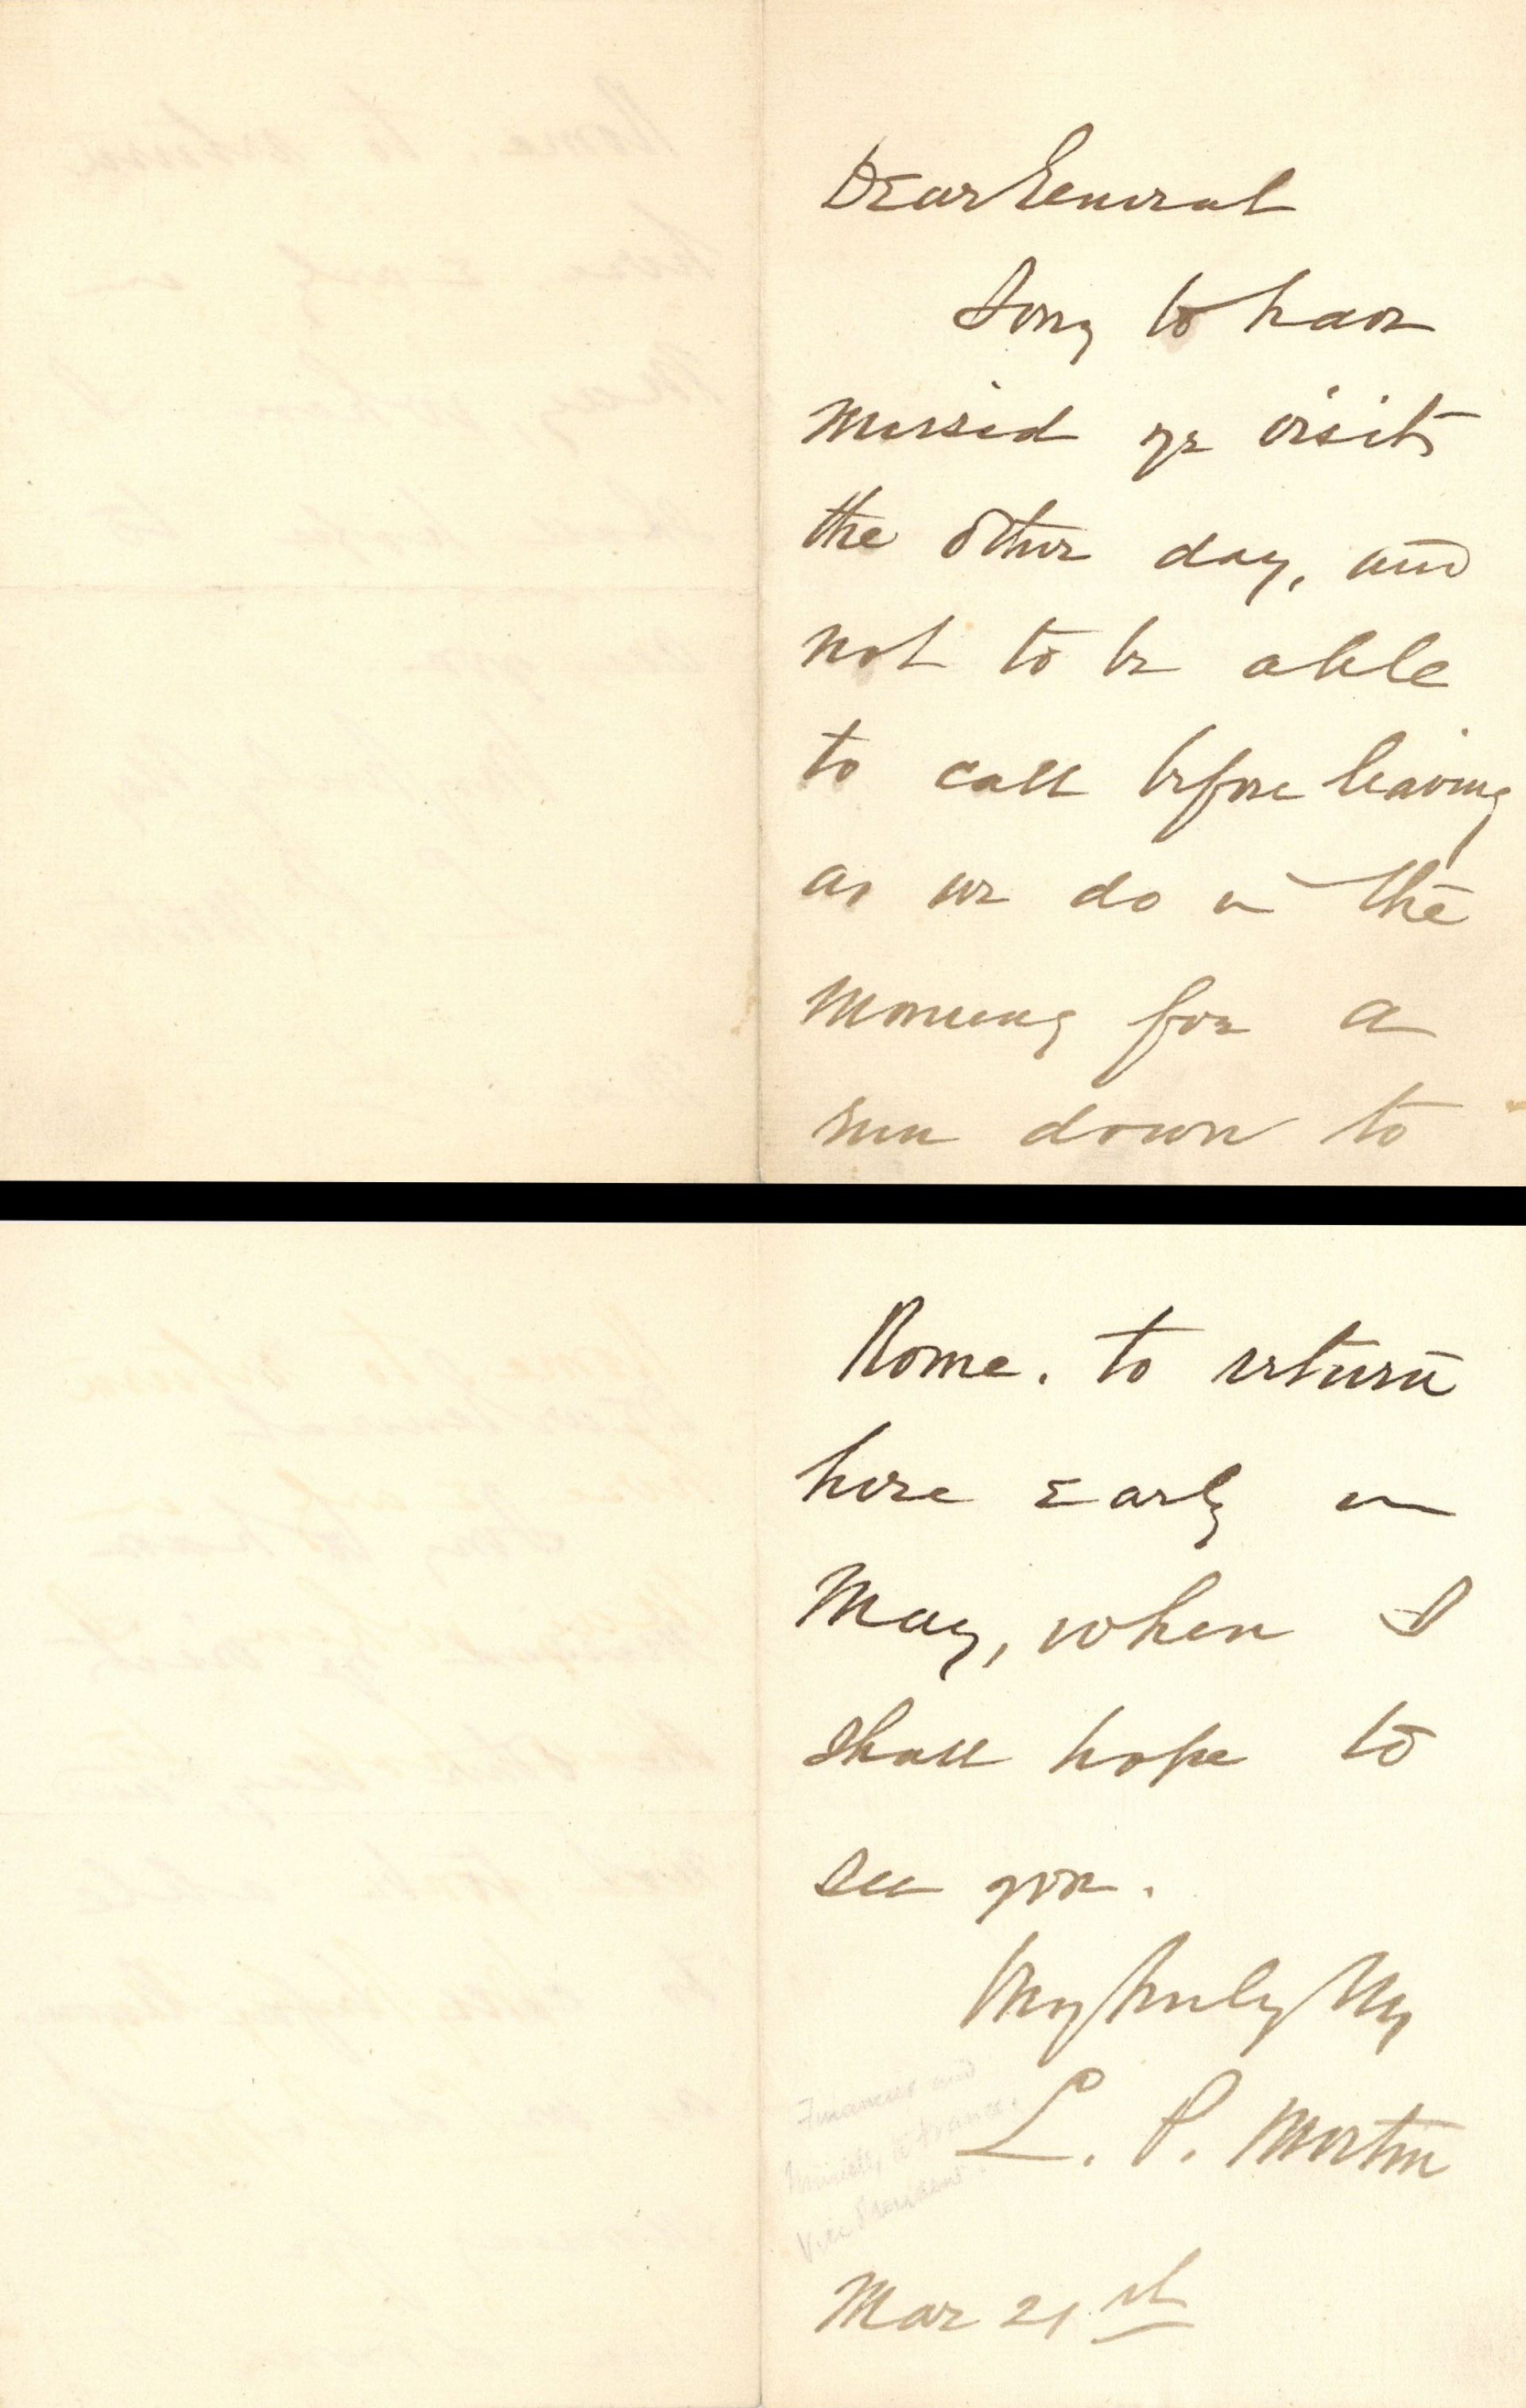 Dear General
Sorry to have
missed yr visit
the other day, and
not to be able
to call before leaving
as we do in the
morning for a
run down to
Rome. to return
here early in
May, when I
shall hope to
see you.
Very truly yrs
L. P. Morton
Financier and
Minister to France.
Vice President.
Mar 21st